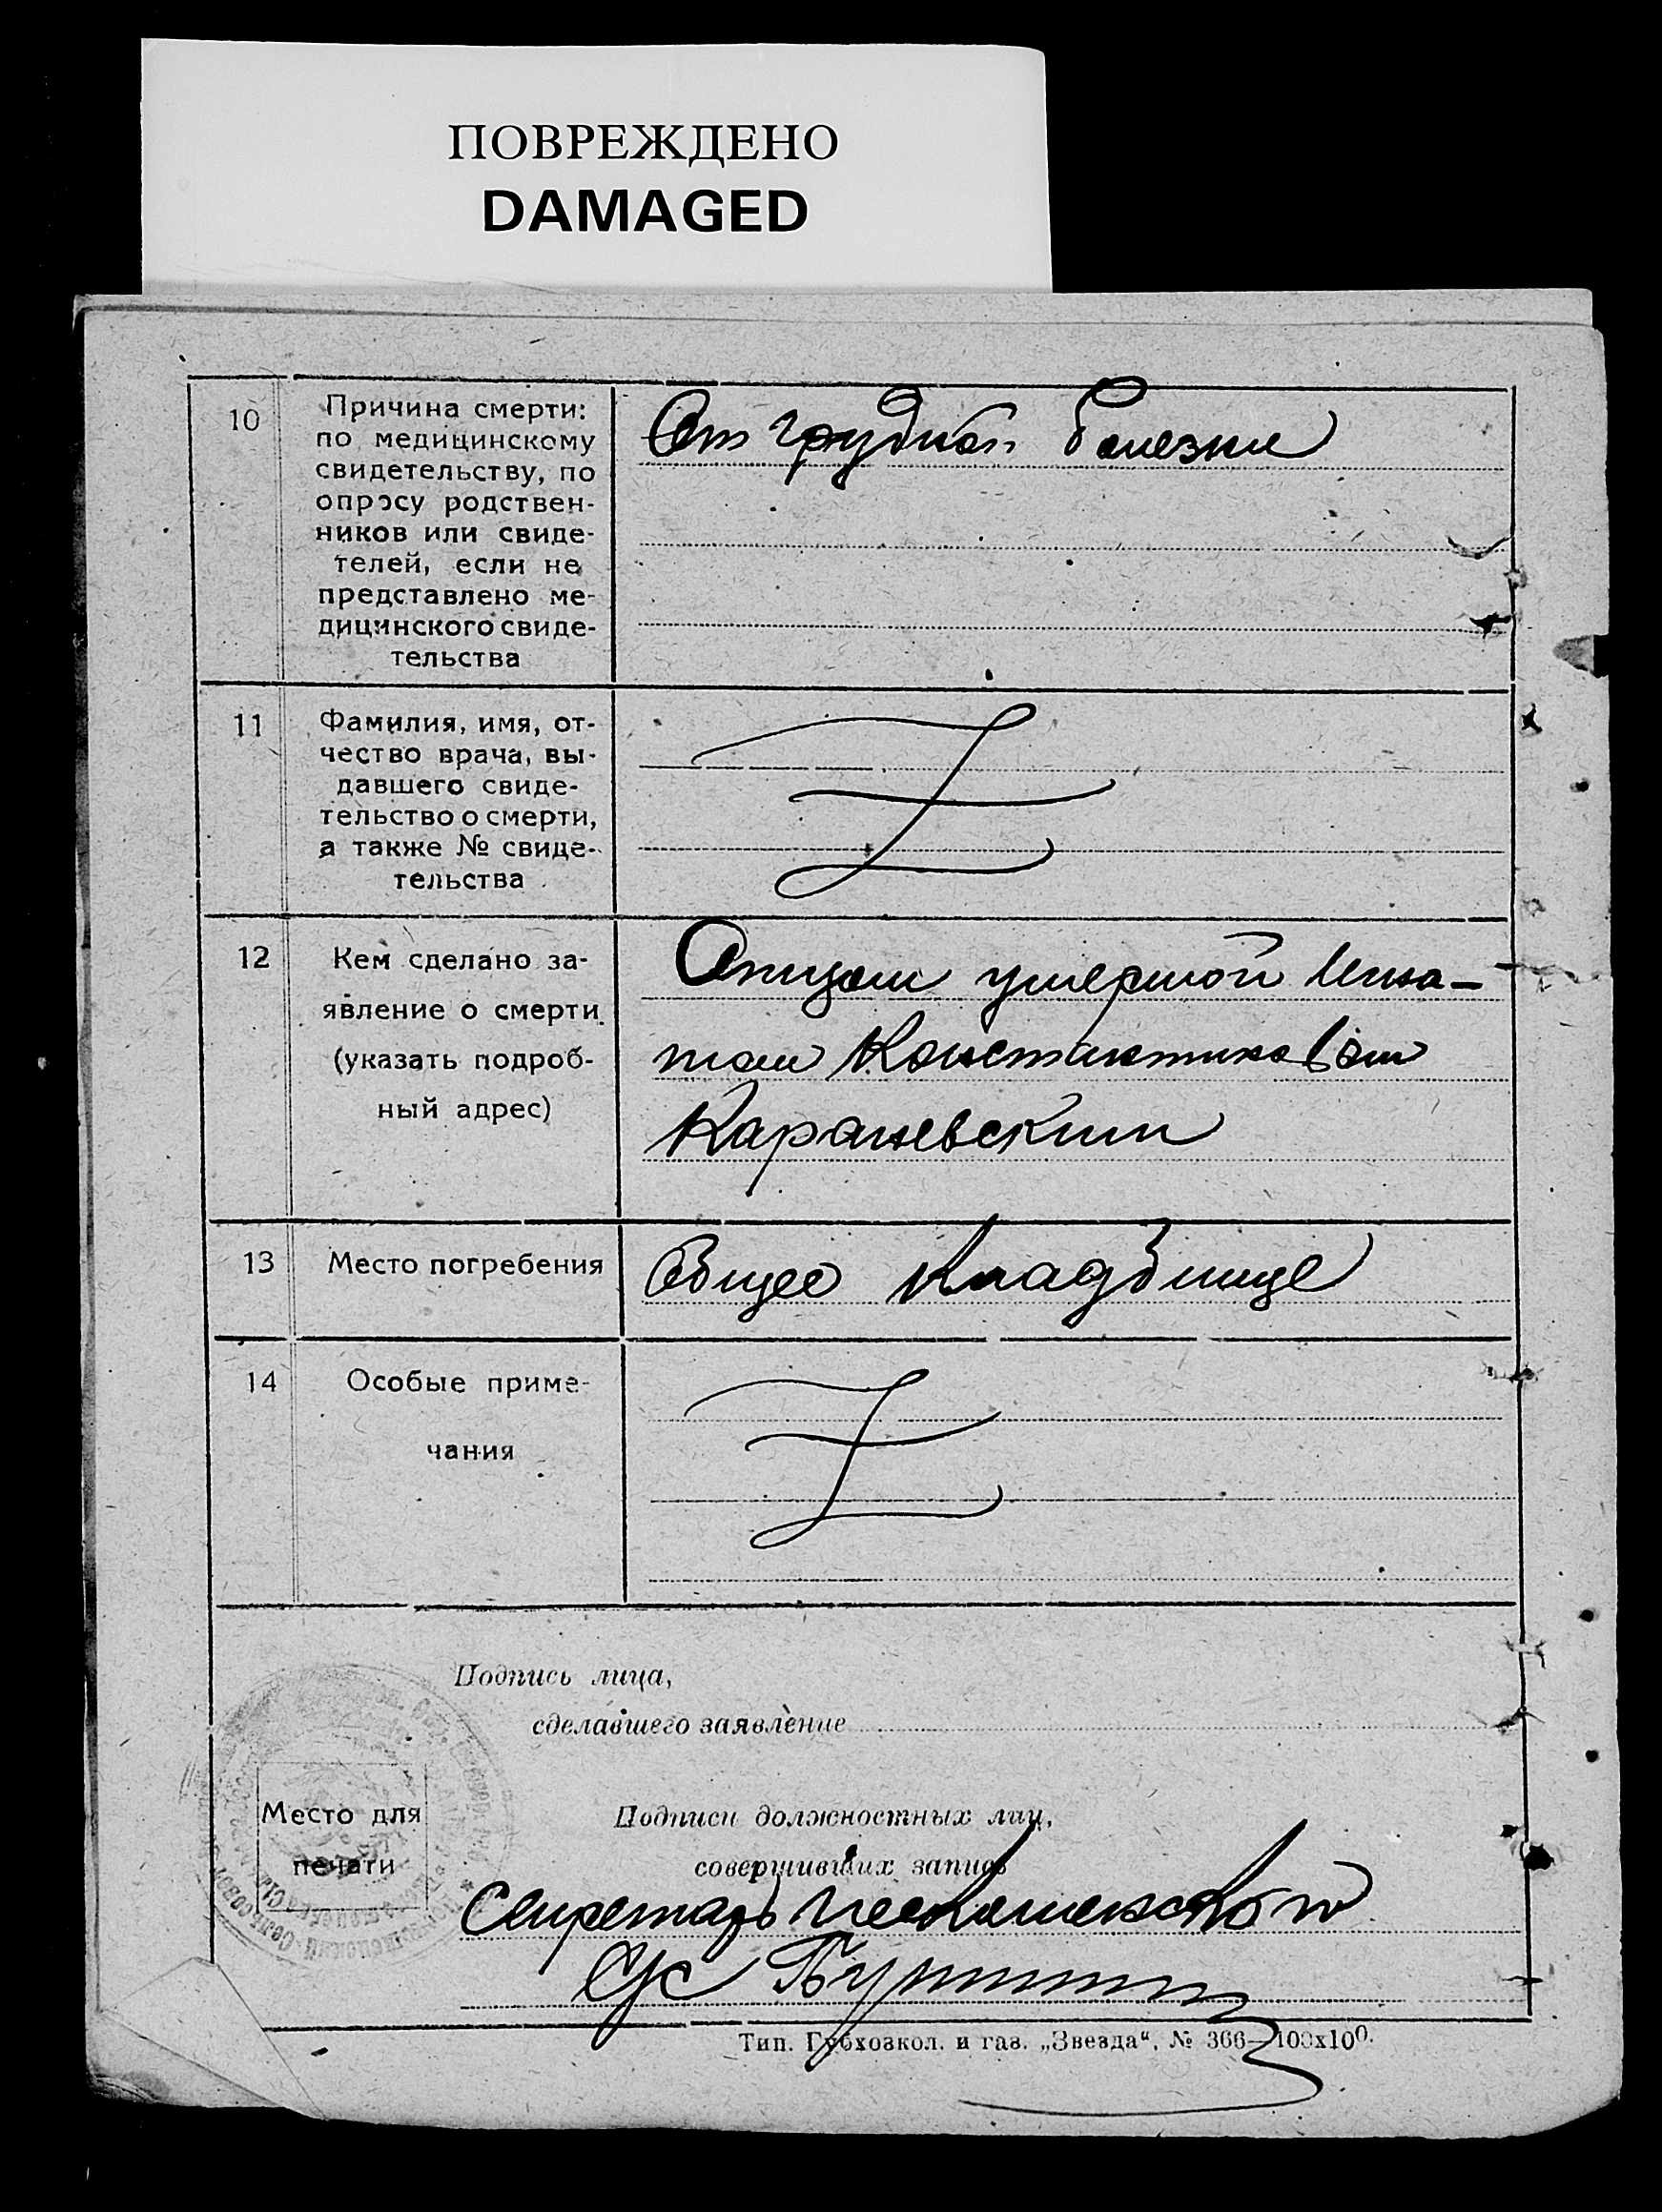 ПОВРЕЖДЕНО
DAMAGED
10
Причина смерти:
по медицинскому
свидетельству, по
опросу родствен-
ников или свиде-
телей, если не
представлено ме-
дицинского свиде-
тельства
От грудной болезни
11
Фамилия, имя, от-
чество врача, вы-
давшего свиде-
тельство о смерти,
а также № свиде-
тельства
Z
12
Кем сделано за-
явление о смерти
(указать подроб-
ный адрес)
Отцом умершой Игна-
том Константиновом
Караневским
13
Место погребения
Общее кладбище
14
Особые приме-
чания
Z
Подпись лица,
сделавшего заявление
Место для
печати
Подписи должностных лиц,
совершивших запись
Секретарь
С/с
Тип. Губхозкол. и газ. „Звезда“, № 366—100х100.